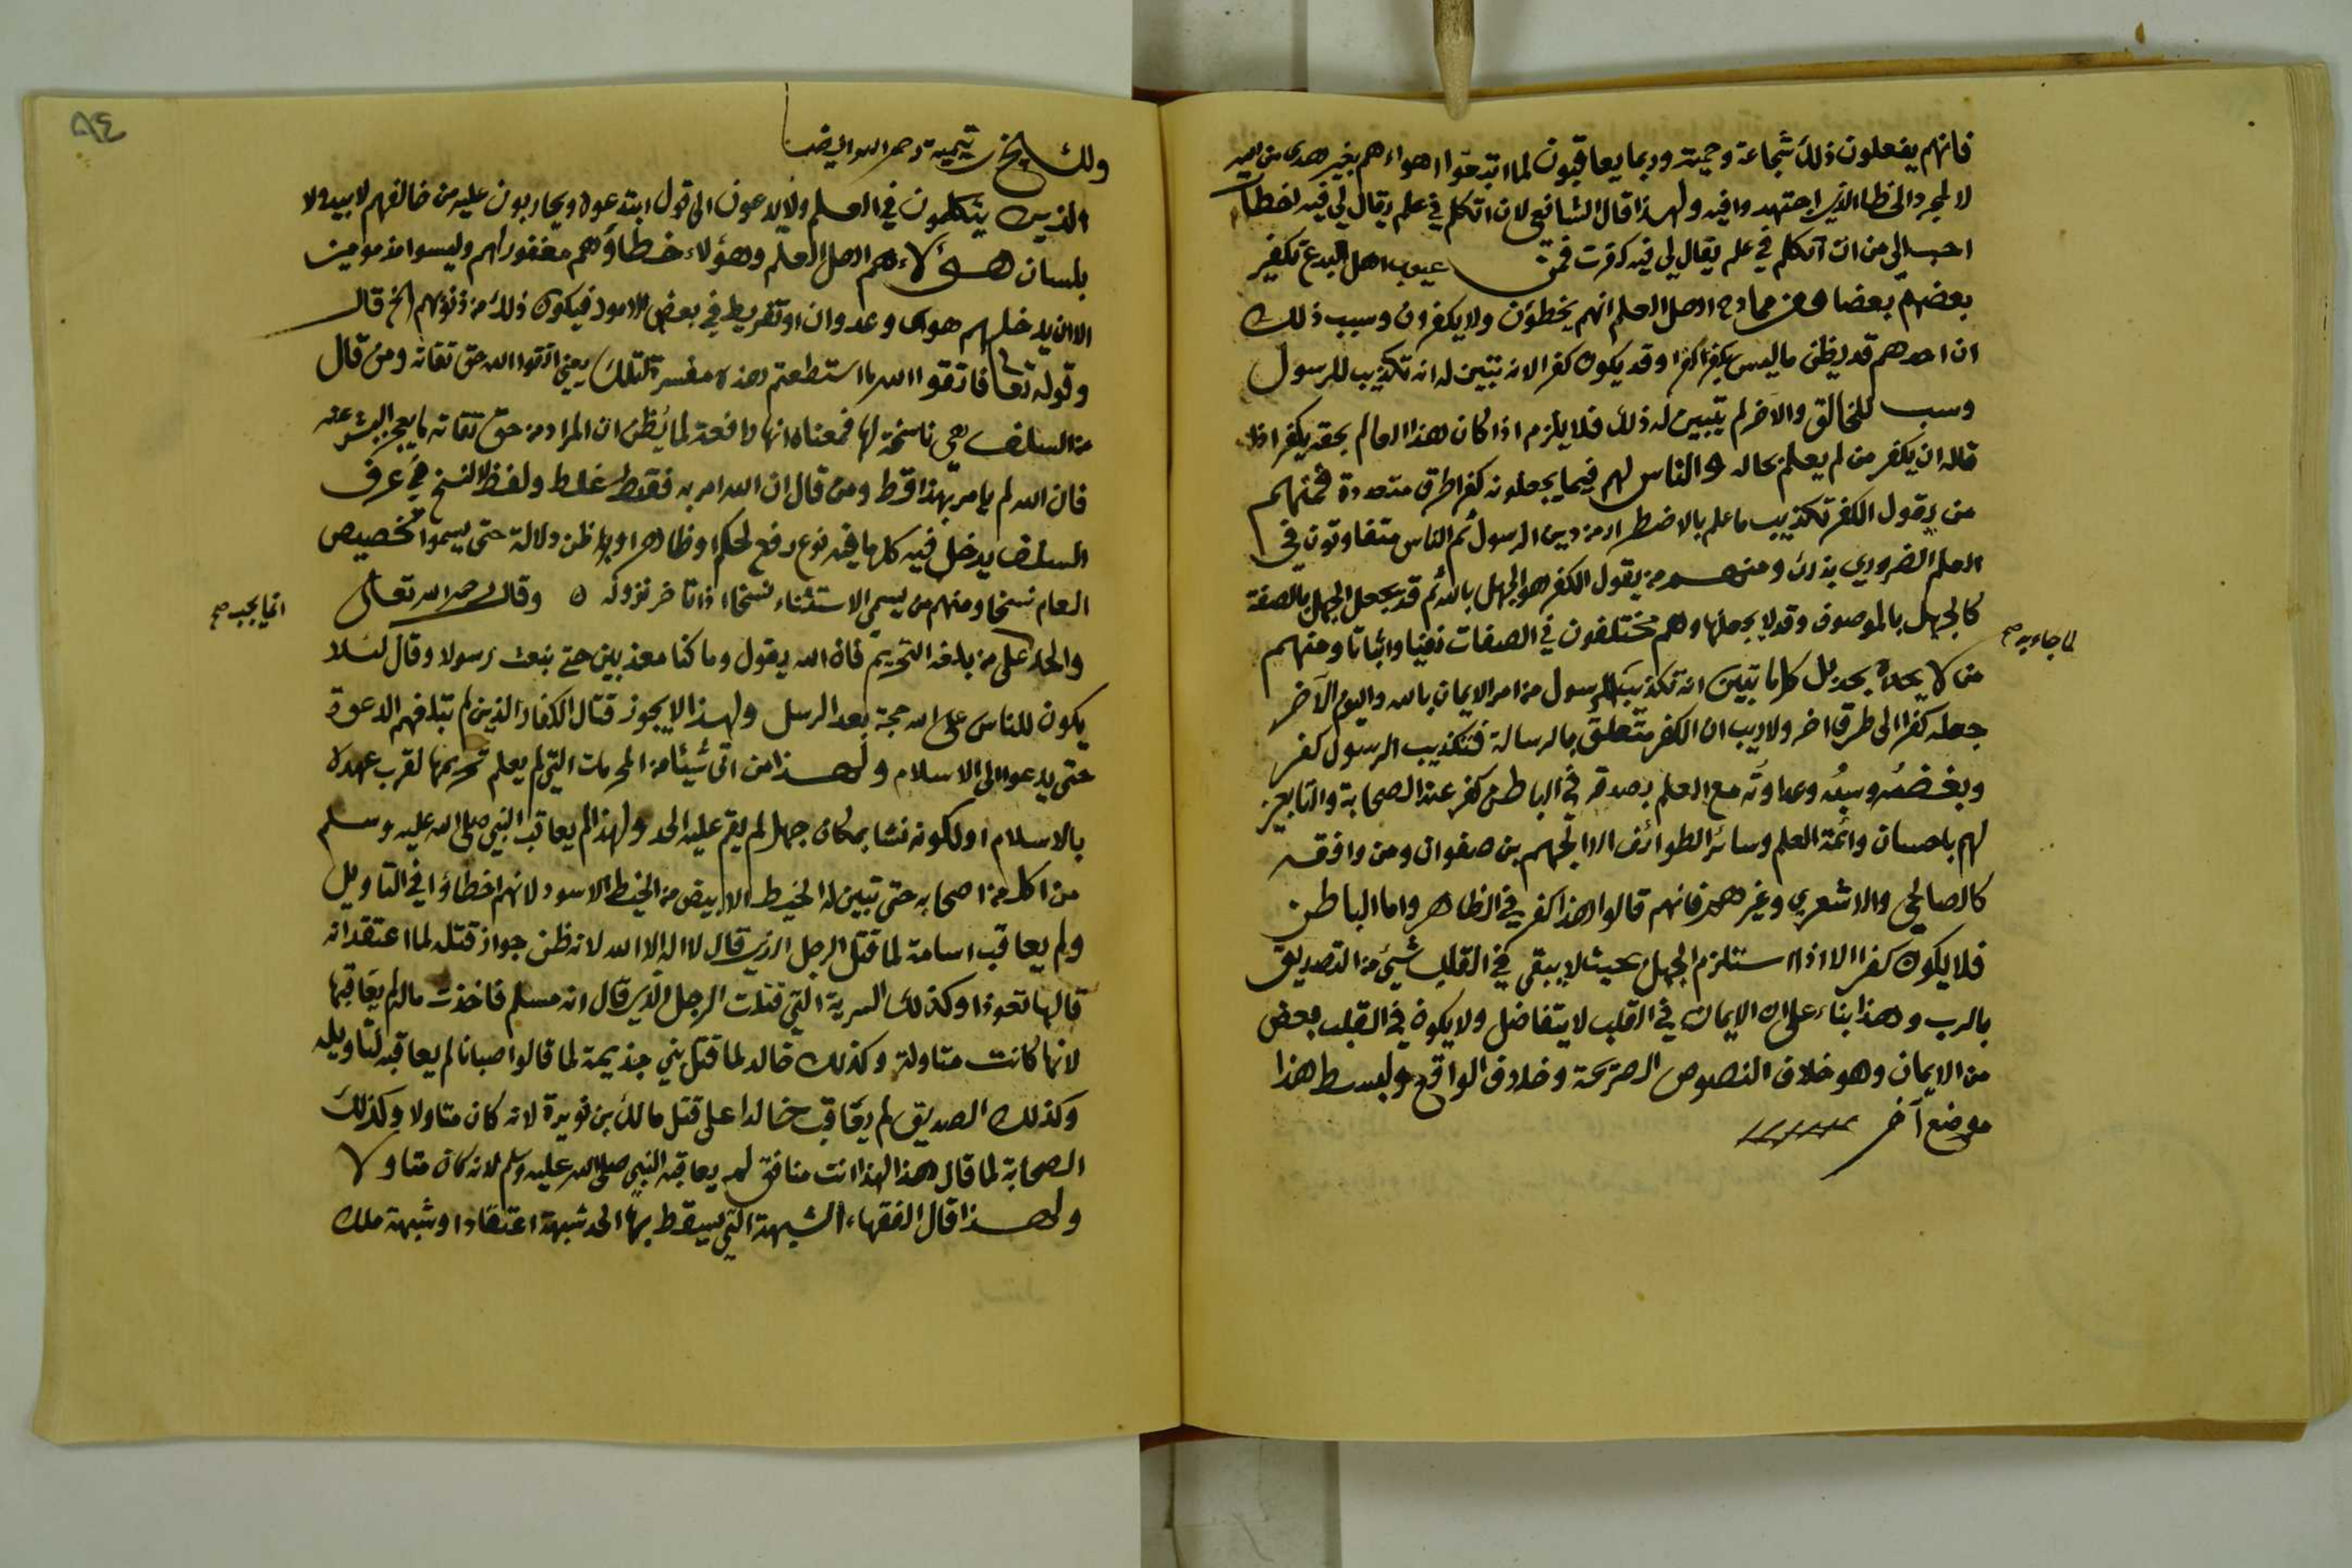 فانهم يفعلون ذلك شجاعة وحمية وربما يعاقبون لما اتبعوا اهواءهم بغير هدى من الله
لا لمجرد الخطا الذي اجتهدوا فيه ولهذا قال الشافعي لان اتكلم في علم يقال لي فيه اخطات
احب الي من ان اتكلم في علم يقال لي فيه كفرت فمن عيوب اهل البدع تكفير
بعضهم بعضا ومن ممادح اهل العلم انهم يخطؤن ولا يكفرون وسبب ذلك
ان احدهم قد يظن ما ليس بكفر كفرا وقد يكون كفرا لانه تبين له انه تكذيب للرسول
وسب للخالق والآخر لم يتبين له ذلك فلا يلزم اذا كان هذا العالم بحقه يكفر اذا
قاله ان يكفر من لم يعلم بحاله والناس لهم فيما يجعلونه كفرا طرق متعددة فمنهم
من يقول الكفر تكذيب ما علم بالاضطرار من دين الرسول ثم الناس متفاوتون في
العلم الضروري بذلك ومنهم من يقول الكفر هو الجهل بالله ثم قد يجعل الجهل بالصفة
كالجهل بالموصوف وقد لا يجعلها وهم مختلفون في الصفات نفيا واثباتا ومنهم
لما جاء به صح
من لا يحده بحد بل كل ما تبين انه تكذيب للرسول من امر الايمان بالله واليوم الآخر
جعله كفرا الى طرق اخر ولا ريب ان الكفر متعلق بالرسالة فتكذيب الرسول كفر
وبغضه وسبه وعداوته مع العلم بصدقه في الباطن كفر عند الصحابة والتابعين
لهم باحسان وائمة العلم وسائر الطوائف الا الجهم بن صفوان ومن وافقه
كالصالحي والاشعري وغيرهم فانهم قالوا هذا كفر في الظاهر واما الباطن
فلا يكون كفرا الا اذا استلزم الجهل بحيث لا يبقى في القلب شيئ من التصديق
بالرب وهذا بناء على ان الايمان في القلب لا يتفاضل ولا يكون في القلب بعض
من الايمان وهو خلاف النصوص الصريحة وخلاف الواقع ولبسط هذا
موضع آخر
٨٤
ولشيخ تيمية رحمه الله ايضا
والذين يتكلمون في العلم ولا يدعون الى قول ابتدعوه ويحاربون عليه من خالفهم لا بيد ولا
بلسان هؤلاء هم اهل العلم وهؤلاء خطاؤهم مغفور لهم وليسوا مذمومين
الا ان يدخلهم هوى وعدوان او تفريط في بعض الامور فيكون ذلك من ذنوبهم الخ قال
وقوله تعالى فاتقوا الله ما استطعتم هذه مفسرة لتلك يعني اتقوا الله حق تقاته ومن قال
من السلف هي ناسخة لها فمعناه انها رافعة لما يُظن ان المراد من حق تقاته ما يعجز البشر عنه
فان الله لم يامر بهذا قط ومن قال ان الله امر به فقد غلط ولفظ النسخ في عرف
السلف يدخل فيه كل ما فيه نوع رفع لحكم او ظاهر او ظن دلالة حتى يسموا تخصيص
العام نسخا ومنهم من يسمي الاستثناء نسخا اذا تاخر نزوله ٥ وقال رحمه الله تعالى
انما يجب صح
والحد على من بلغه التحريم فان الله يقول وما كنا معذبين حتى نبعث رسولا وقال لئلا
يكون للناس على الله حجة بعد الرسل ولهذا لا يجوز قتال الكفار الذين لم تبلغهم الدعوة
حتى يدعوا الى الاسلام ولهذا من اتى شيئا من المحرمات التي لم يعلم تحريمها لقرب عهده
بالاسلام او لكونه نشا بمكان جهل لم يقم عليه الحد ولهذا لم يعاقب النبي صلى الله عليه وسلم
من اكل من اصحابه حتى تبين له الخيط الابيض من الخيط الاسود لانهم اخطاؤا في التاويل
ولم يعاقب اسامة لما قتل الرجل الذي قال لا اله الا الله لانه ظن جواز قتله لما اعتقد انه
قالها تعوذا وكذلك السرية التي قتلت الرجل الذي قال انه مسلم فاخذت ماله لم يعاقبها
لانها كانت متاولة وكذلك خالد لما قتل بني جذيمة لما قالوا صبانا لم يعاقبه لتاويله
وكذلك الصديق لم يعاقب خالدا على قتل مالك بن نويرة لانه كان متاولا وكذلك
الصحابة لما قال هذا لهذا انت منافق لم يعاقبه النبي صلى الله عليه وسلم لانه كان متاولا
ولهذا قال الفقهاء الشبهة التي يسقط بها الحد شبهة اعتقاد او شبهة ملك